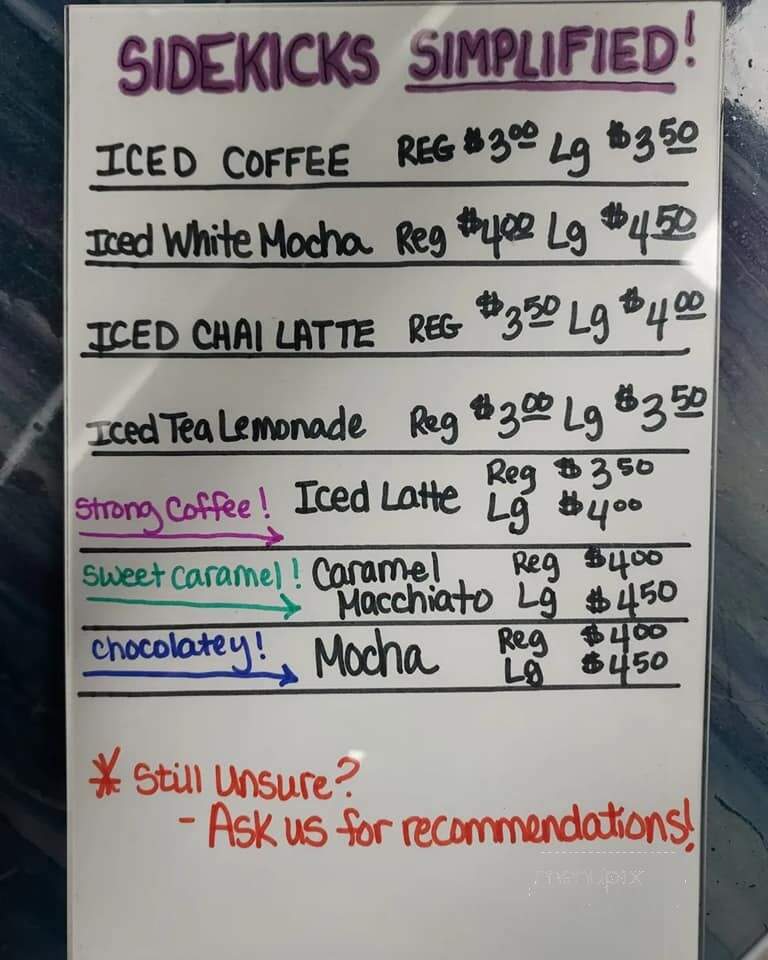 SIDEKICKS SIMPLIFIED!
ICED COFFEE REG $3.00 Lg $3.50
Iced White Mocha Reg $4.00 Lg $4.50
ICED CHAI LATTE REG $3.50 Lg $4.00
Iced Tea Lemonade Reg $3.00 Lg $3.50
Strong Coffee! Iced Latte Reg $3.50
Lg $4.00
Sweet Caramel! Caramel Reg $4.00
Macchiato Lg $4.50
Chocolatey! Mocha Reg $4.00
Lg $4.50
* Still Unsure?
- Ask us for recommendations!
menupix